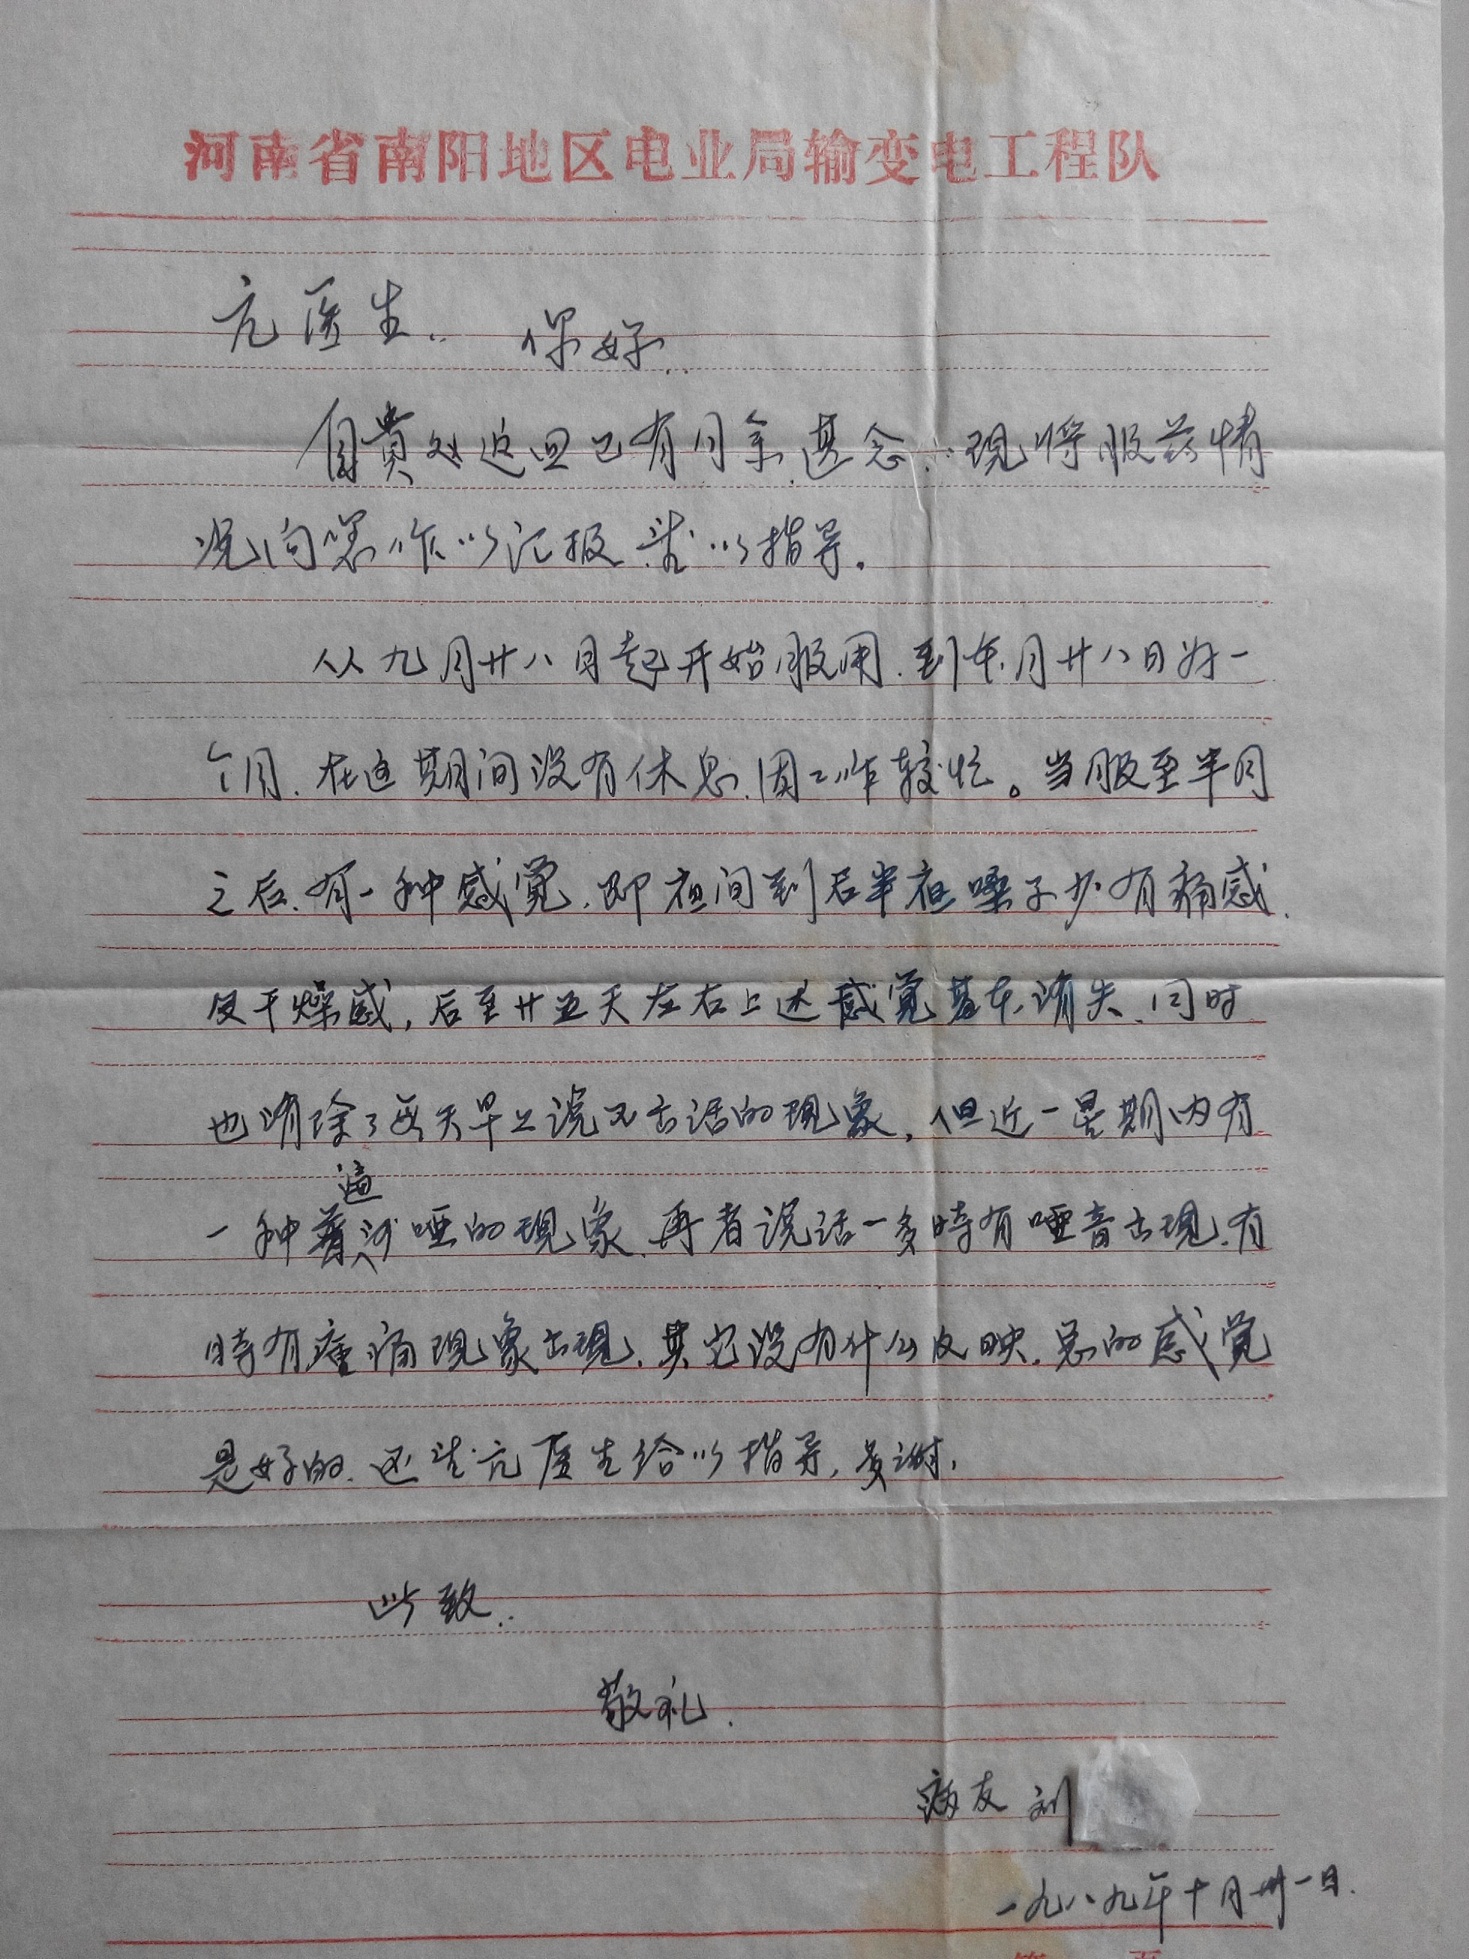 河南省南阳地区电业局输变电工程队
亢医生: 你好.
自贵处返回已有月余,甚念.现将服药情
况向您作以汇报,请以指导。
从九月廿八日起开始服用.到本月廿八日好一
个月.在这期间没有休息.因工作较忙。当服至半月
之后.有一种感觉.即夜间到后半夜嗓子少有痛感.
及干燥感,后至廿五天左右上述感觉基本消失.同时
也消除了每天早上说不出话的现象,但近一星期内有
一种普遍沙哑的现象.再者说话一多时有哑音出现.有
时有疼痛现象出现.其它没有什么反映.总的感觉
是好的.还请亢医生给以指导,为谢.
此致:
敬礼.
病友 刘
一九八九年十月卅一日.